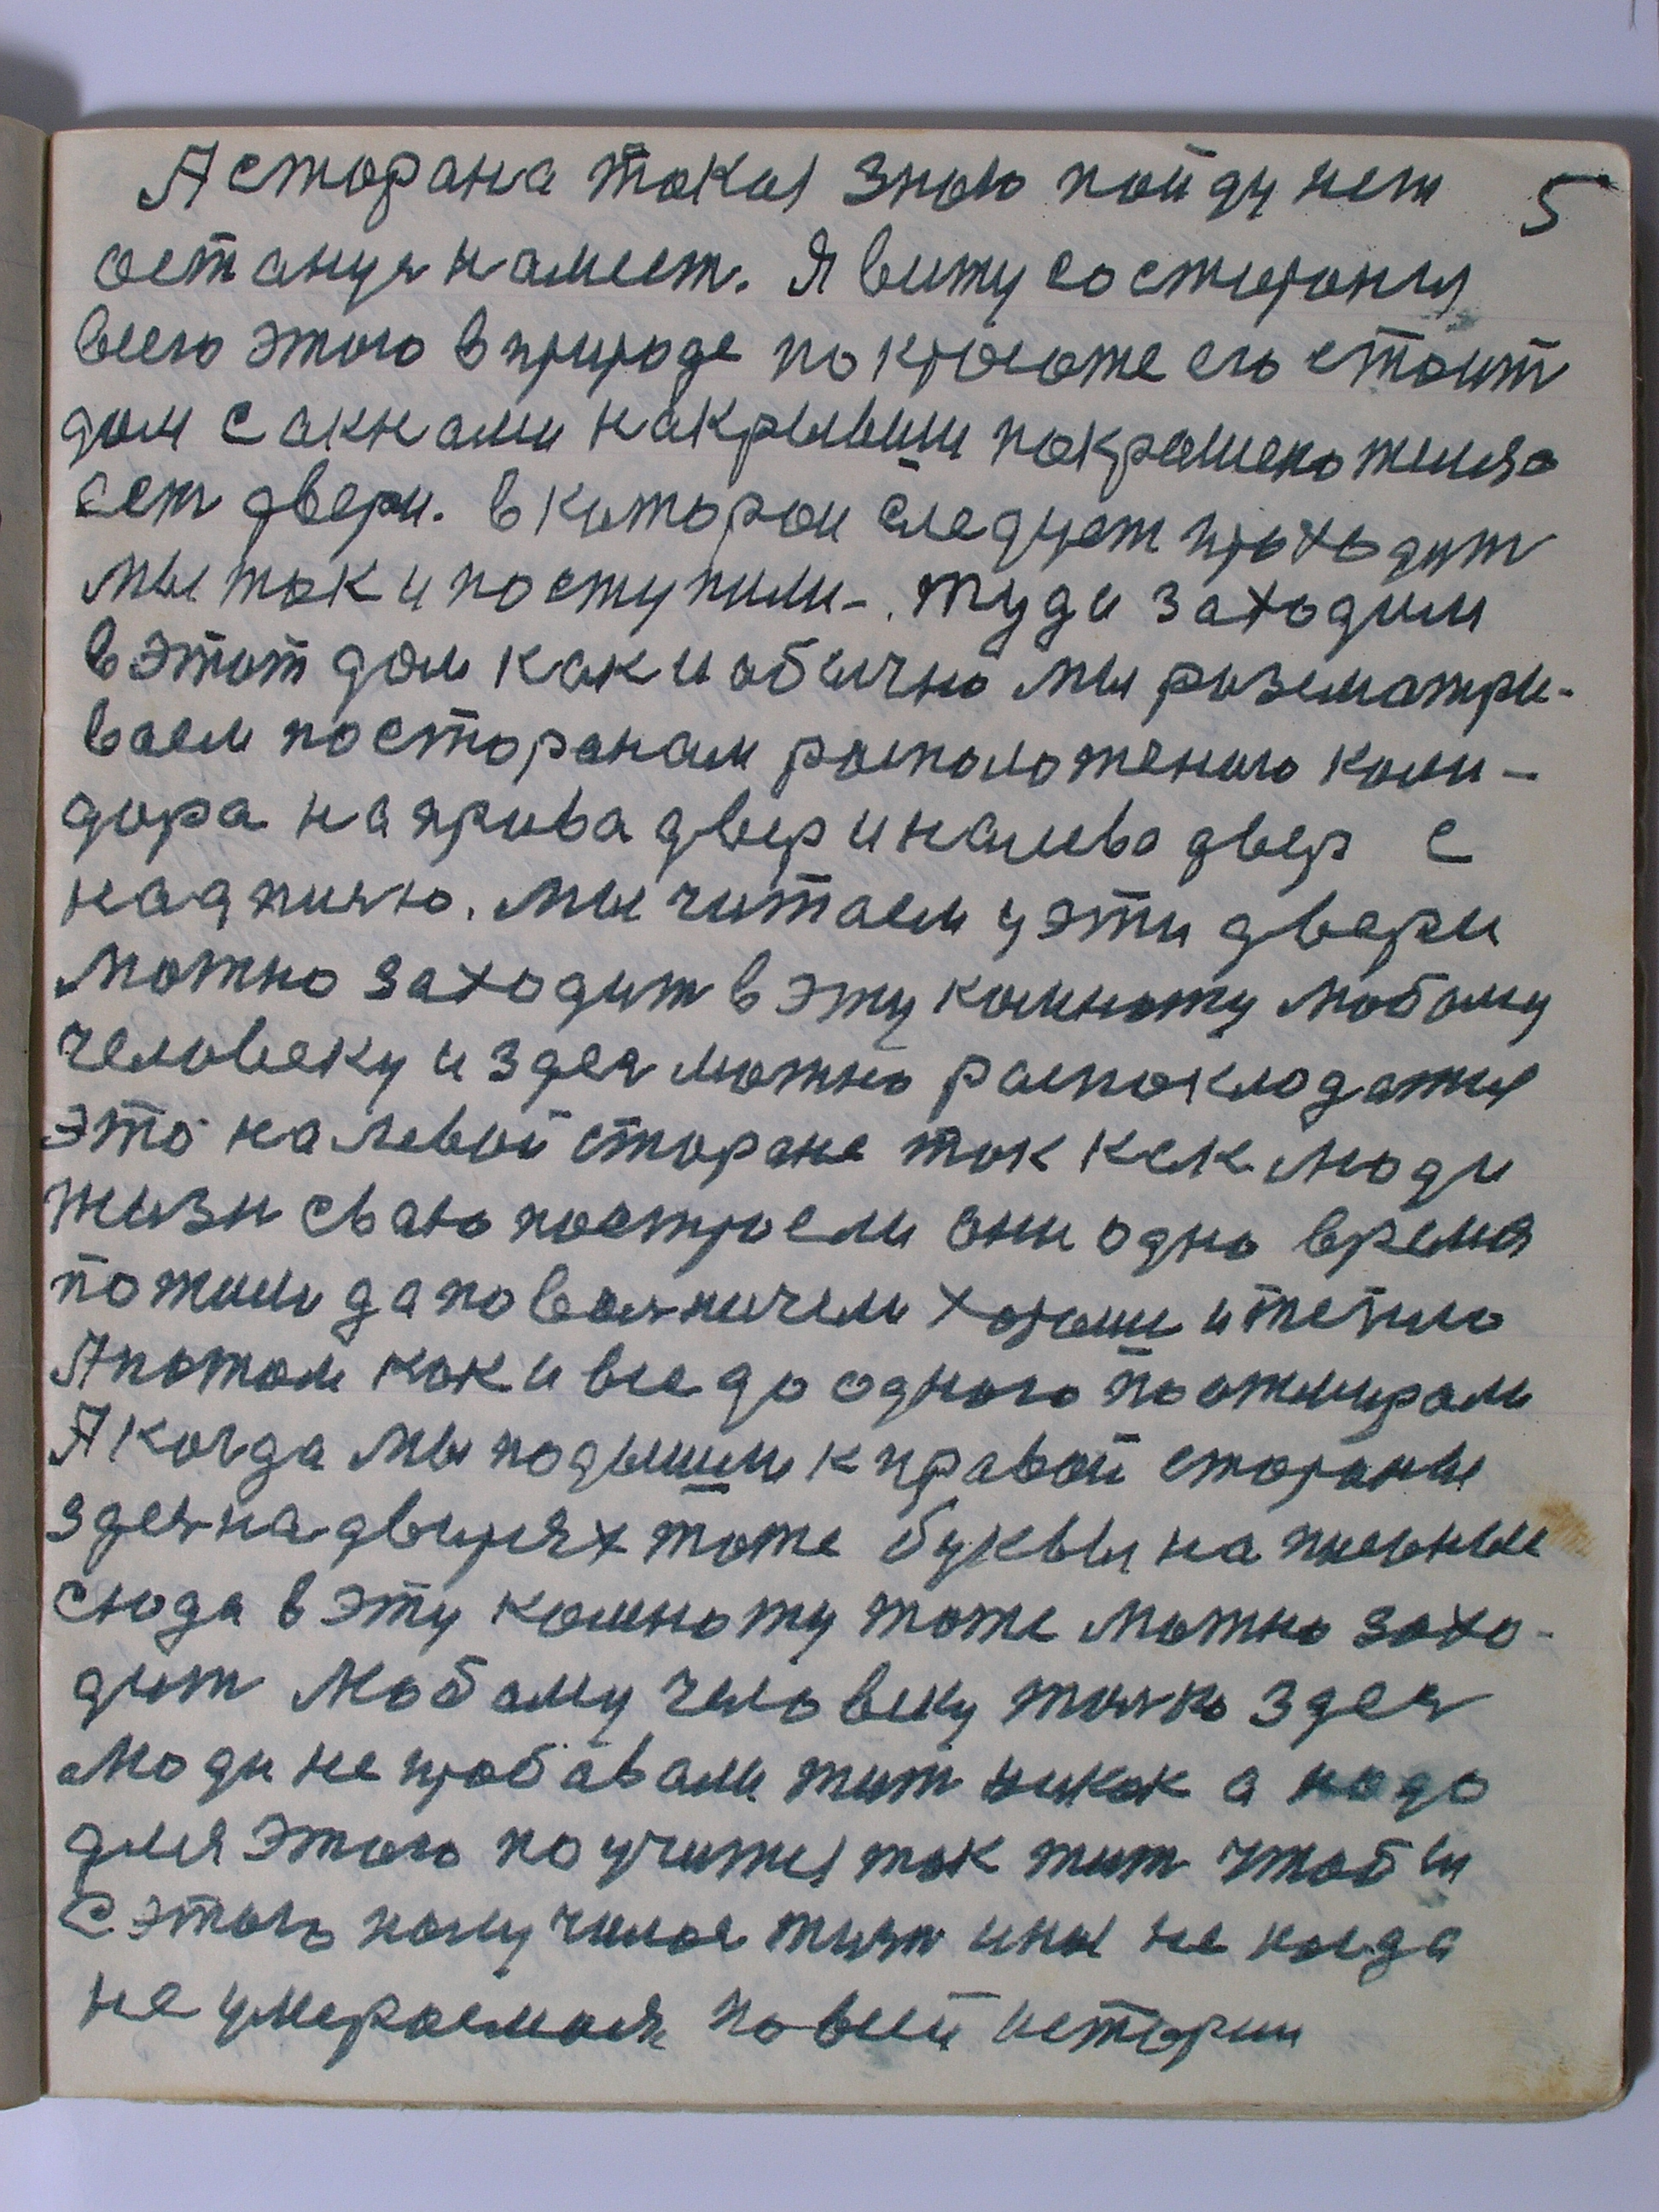 А сторана такая зною пойду нет 5
астануя на мест. Я вижу со стороныя
всего этого в природе по красоте его стоит
дом с акнами на крывши покрашено жилиза
ест двери. в которои следует проходит
мы так и поступили-. туда заходим
в этот дом как и обычно мы разсматри-
ваем по сторанам расположениго коли-
дора направа двер и налево двер с
надписяю. мы читаем у эти двери
можно заходит в эту комнату любому
человеку и здес можно распокладатия
это на левой сторане так как люди
жизн сваю построели они одно время
пожили да поволничели хороши и тепло
А потом как и все до одного поотмирали
А когда мы подышли к правой стораны
здес на дверях тоже буквы написыные
сюда в эту комнату тоже можно захо-
дит любому человеку толко здес
люди не пробавали жит никак а надо
для этого поучится так жит чтобы
с этого получилос жизн ины не когда
не умераемая по всей истории